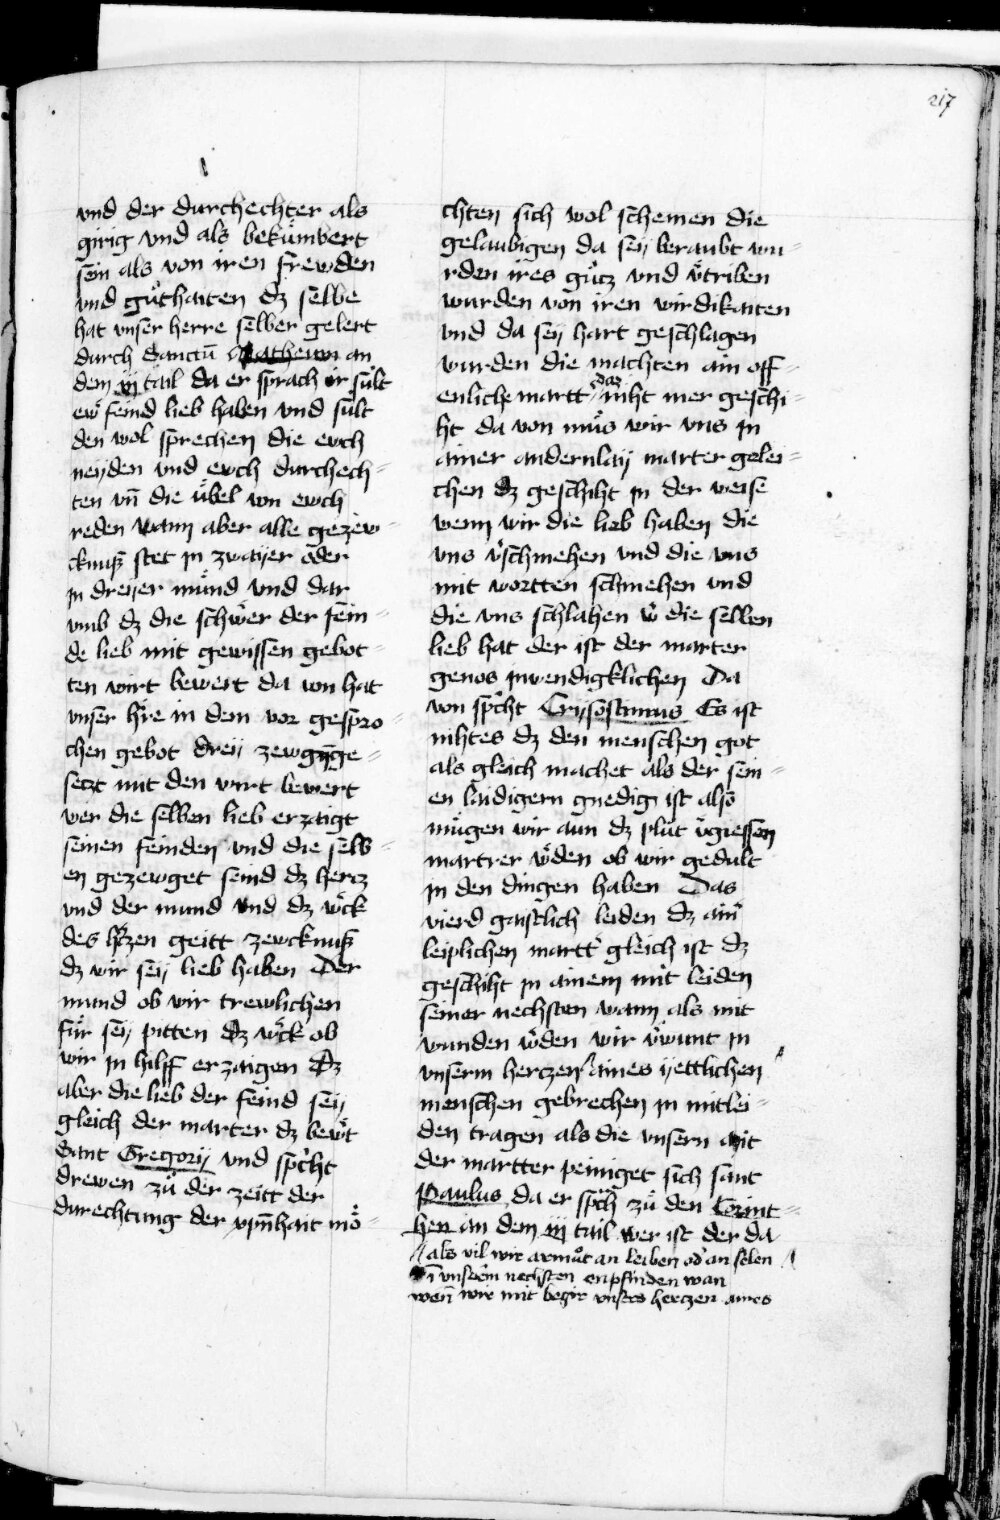 217
vnd der durchechter als
girig vnd als bekümbert
sein als von iren frewden
vnd gůthaiten dz selbe
hat vnser herre selber gelert
durch Sanctū Matheum an
dem iij tail da er sprach ir sult
ew̄ feind lieb haben vnd sult
den wol sprechen die euch
neyden vnd ewch durchech=
ten vn̄ die übel von ewch
reden wann aber alle gezew=
cknuß stet in zwaÿer oder
in dreÿer mund vnd dar
vmb dz die schwer der fein=
de lieb mit gewissen gebot=
ten wirt bewert da von hat
vnser hre in dem vor gespro=
chen gebot dreÿ zewgn̄ge=
seczt mit den wirt bewert
wer die selben lieb erzaigt
seinen feinden vnd die selb=
en gezewget seind dz hercz
vnd der mund vnd dz wk̄
des hzen geitt zewcknuß
dz wir seÿ lieb haben Der
mund ob wir trewlichen
für seÿ pitten dz wck ob
wir in hilff erzaigen Dz
aber die lieb der feind seÿ
gleich der marter dz bewt
Sant Gregorÿ vnd spcht
drewen zů der zeitt der
durechtung der vpn̄hait mö=
chten sich wol schemen die
gelaubigen da seÿ beraubt wu=
rden ires gůtz vnd vtriben
wurden von iren wirdikaiten
vnd da seÿ hart geschlagen
wurden die machten ain off=
enliche martt das niht mer geschi=
ht da von můs wir vns in
ainer andernlaÿ marter gelei=
chen dz geschiht in der weise
wenn wir die lieb haben die
vns vschmehen vnd die vns
mit wortten schmehen vnd
die vns schlahen w die selben
lieb hat der ist der marter
genos inwendigklichen Da
von spcht Crÿsostimus Es ist
nihtes dz den menschen got
als gleich machet als der sein=
en laidigern gnedig ist also
mügen wir aun dz plůt vgiessen
martrer wden ob wir gedult
in den dingen haben Das
vierd gaistlich leiden dz ain
leiplichen martt gleich ist dz
geschiht in ainem mit leiden
seiner nechsten wann als mit
wunden wden wir vwunt in
vnserm herczen aines ÿettlichen
menschen gebrechen in mitlei=
den tragen als die vnsern mit
der martter peiniget sich sant
Paulus da er spch zů den Corint=
hen an dem iij tail wer ist der da
als vil wir armůt an leiben od an selen
in vnserm nechsten enpfinden wan
wen̄ wir mit begir vnsers herczen aines